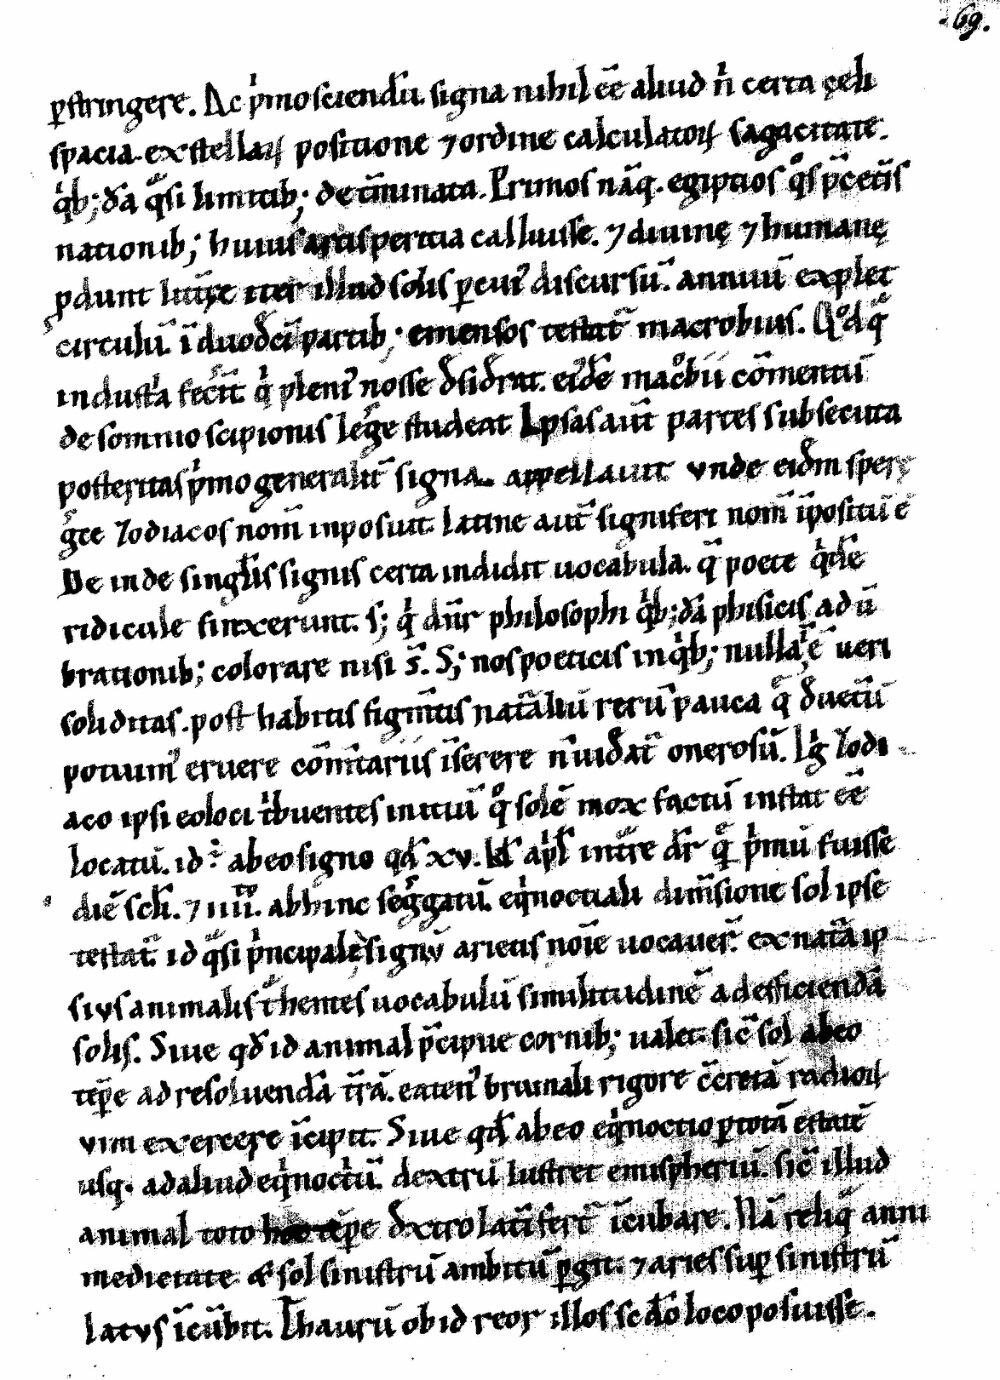 .69.
ꝑstringere. Ac pͥmo sciendū. signa nihil eē aliud nͥ certa çeli
spacia. ex stellaꝝ positione ⁊ ordine calculatoꝝ sagacitate.
qͥb; dā qͣsi limitib; de t̄minata. Primos nāq. egiptios qͦs p̄cet̄is
nationib; huius artis peritia calluisse. ⁊ diuinę ⁊ humanę
ꝓdunt litt̄ę iter illud solis ꝑ cui᾿ discursū. annuū explet
circulū. ī duodecī partib; emensos testat̄ macrobius. Qͦd qͣ
industͥa fec̄it qͥ pleni᾿ nosse dͤsidͤrat. ei᾿dē macͦbii cōmentū
de somnio scipionis legͤe studeat Ipsas aūt partes subsecuta
posteritas pͥmo generalit̄ signa. appellauit vnde eidͤm sperę
gͤce Zodiacos nom̄ inposuit. latine aūt signiferi nom̄ īpositū ē
De inde singl̄is signis certa indidit uocabula. q̄ poete qͥdē
ridicule finxerunt. s; qͥ dn̄r philosophi qͥb;dā phisicis adū
brationib; colorare nisi s̄. S; nos poeticis in qͥb; nulla ē ueri
soliditas. post habitis figm̄tis nat̄aliū rerū pauca qͣ dͤ uet̄ū
potuim᾿ eruere com̄tariis īserere n̄ uidͤat̄ onerosū. Igͥ Zodi
aco ipsi eo loci tͥbuentes initiū qͦ solē mox factū instat eē
locatū. id ÷ ab eo signo qd̄ xv. kl̄ apͥl int̄re dr̄ qͣ pͥmū fuisse
diē scl̄i. ⁊ iiii. ab hinc segͤgatū. eqͥnoctiali dim̄sione sol ipse
testat̄. id qͣsi pͥncipale signū arietis noīe uocauer̄. ex nat̄a ip
sius animalis t̄hentes uocabulū similitudinē ad efficiendā
solis. Siue qd̄ id animal p̄cipue cornib; ualet. sic̄ sol ab eo
tēpe ad resoluendā t̄rā. eaten᾿ brumali rigore c̄cretā radioꝝ
vim exercere īcipit. Siue qd̄ ab eo eqͥnoctio ꝑ totā estatē
usq. ad aliud eqͥnoctͥū. dextrū lustret emispheriū. sic̄ illud
animal toto hoc tēpe dͤxtro lat̄i fert̄ īcubare. Nā reliqͣ anni
medietate & sol sinistrū ambitū ꝑgit. ⁊ aries suꝑ sinistrū
latus īcūbit. Thaurū ob id reor illos sc̄do loco posuisse.